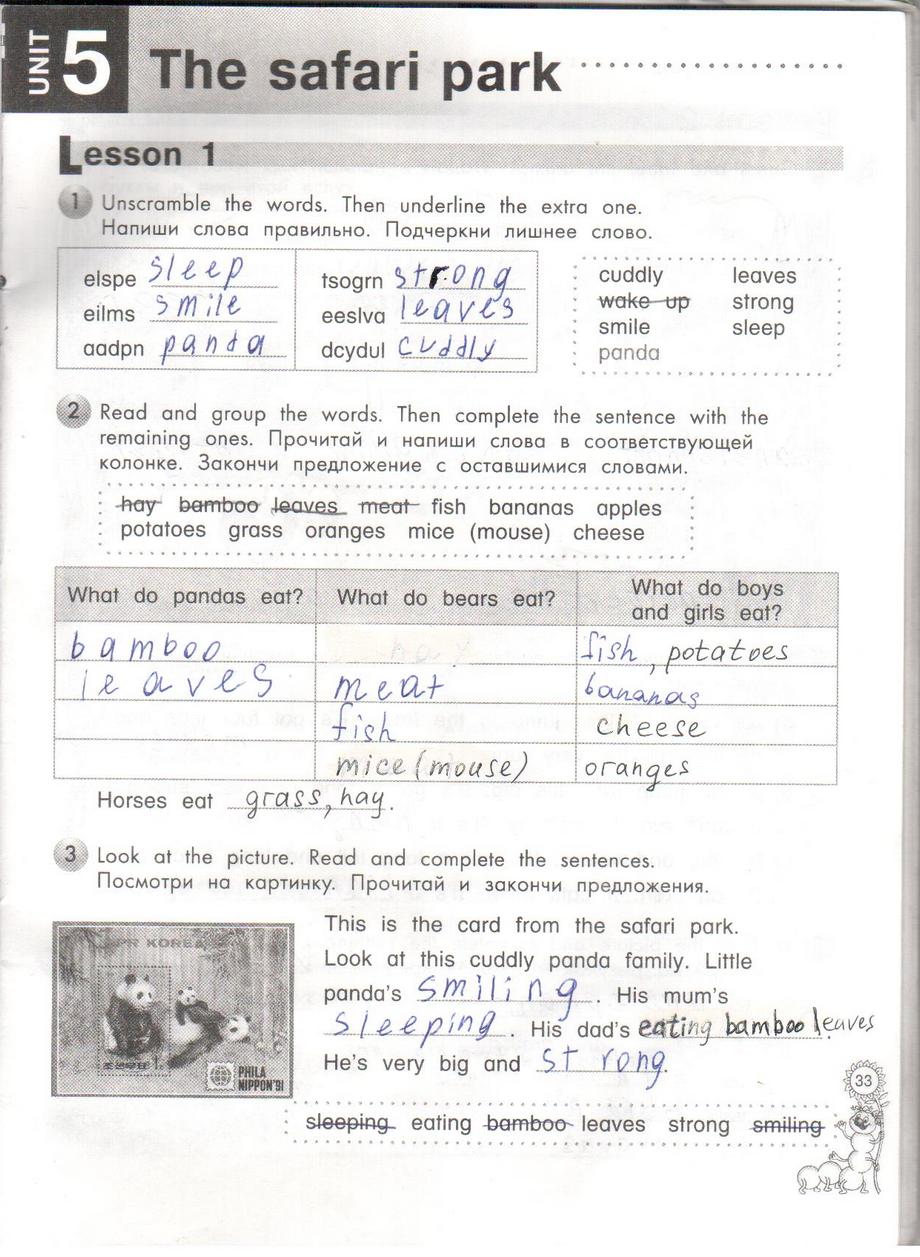 UNIT 5 The safari park
Lesson 1
1 Unscramble the words. Then underline the extra one.
Напиши слова правильно. Подчеркни лишнее слово.
elspe sleep tsogrn strong
eilms smile eeslva leaves
aadpn panda dcydul cuddly
cuddly leaves
wake up strong
smile sleep
panda
2 Read and group the words. Then complete the sentence with the
remaining ones. Прочитай и напиши слова в соответствующей
колонке. Закончи предложение с оставшимися словами.
hay bamboo leaves meat fish bananas apples
potatoes grass oranges mice (mouse) cheese
What do pandas eat? What do bears eat? What do boys
and girls eat?
bamboo hay fish, potatoes
leaves meat bananas
fish cheese
mice (mouse) oranges
Horses eat grass, hay.
3 Look at the picture. Read and complete the sentences.
Посмотри на картинку. Прочитай и закончи предложения.
DPR KOREA
PHILA
NIPPON'91
This is the card from the safari park.
Look at this cuddly panda family. Little
panda's smiling. His mum's
sleeping. His dad's eating bamboo leaves
He's very big and strong.
33
sleeping eating bamboo leaves strong smiling